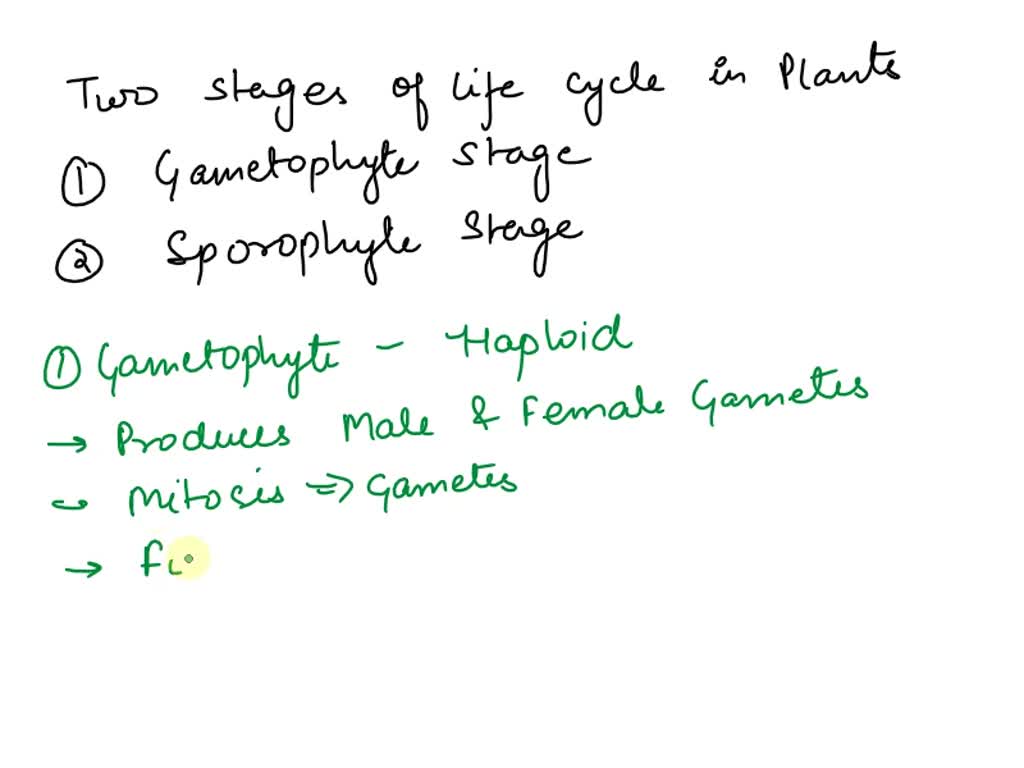 Two stages of life cycle in Plants
① Gametophyte stage
② Sporophyte stage
① Gametophyte - Haploid
→ Produces Male & Female Gametes
→ Mitosis ⇒ Gametes
→